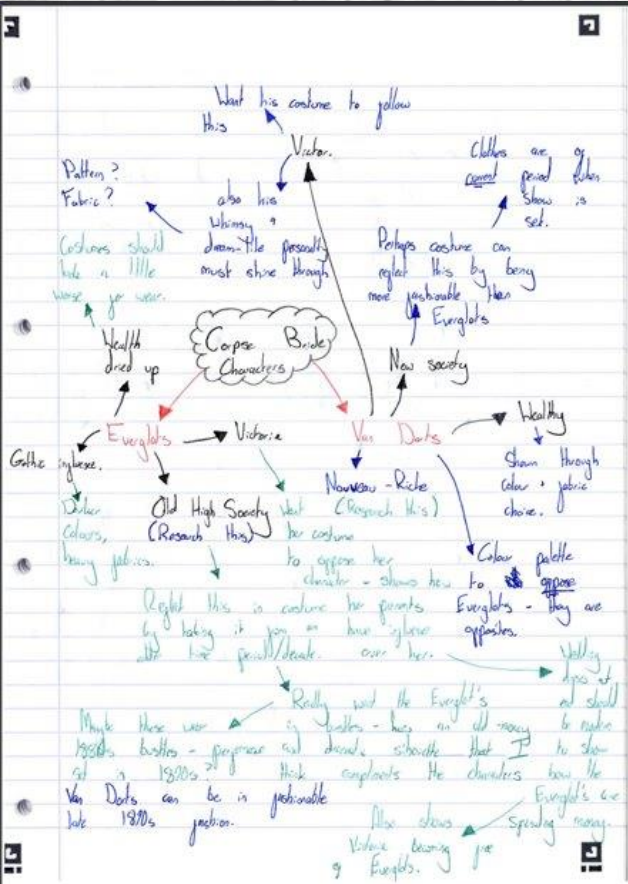 Want his costume to follow
this
Victor.
also his
whimsy &
dream-like personality
must shine through
Pattern?
Fabric?
Costumes should
look a little
worse for wear.
Clothes are of
correct period when
show is
set.
Perhaps costume can
reflect this by being
more fashionable than
Everglots
Corpse Bride
Characters
Wealth
dried up
New society
Everglots
Victoria
Van Dorts
Wealthy
Gothic influence.
Darker
colours,
heavy fabrics.
Old High Society
(Research this)
Nouveau-Riche
(Research this)
Shown through
colour + fabric
choice.
Want
her costume
to oppose her
character - shows how
her parents
have influence
over her.
Colour palette
to oppose
Everglots - they are
opposites.
Reflect this in costume
by taking it from an
older time period/decade.
Wedding
dress at
end should
be modern
to show
how the
Everglot's are
spending money.
Really want the Everglot's
in bustles - has an old-money
and dramatic silhouette that I
think compliments the characters
Maybe these wear
1880s bustles - performance
set in 1890s?
Van Dorts can be in fashionable
late 1890s fashion.
Also shows
Victoria becoming free
of Everglots.